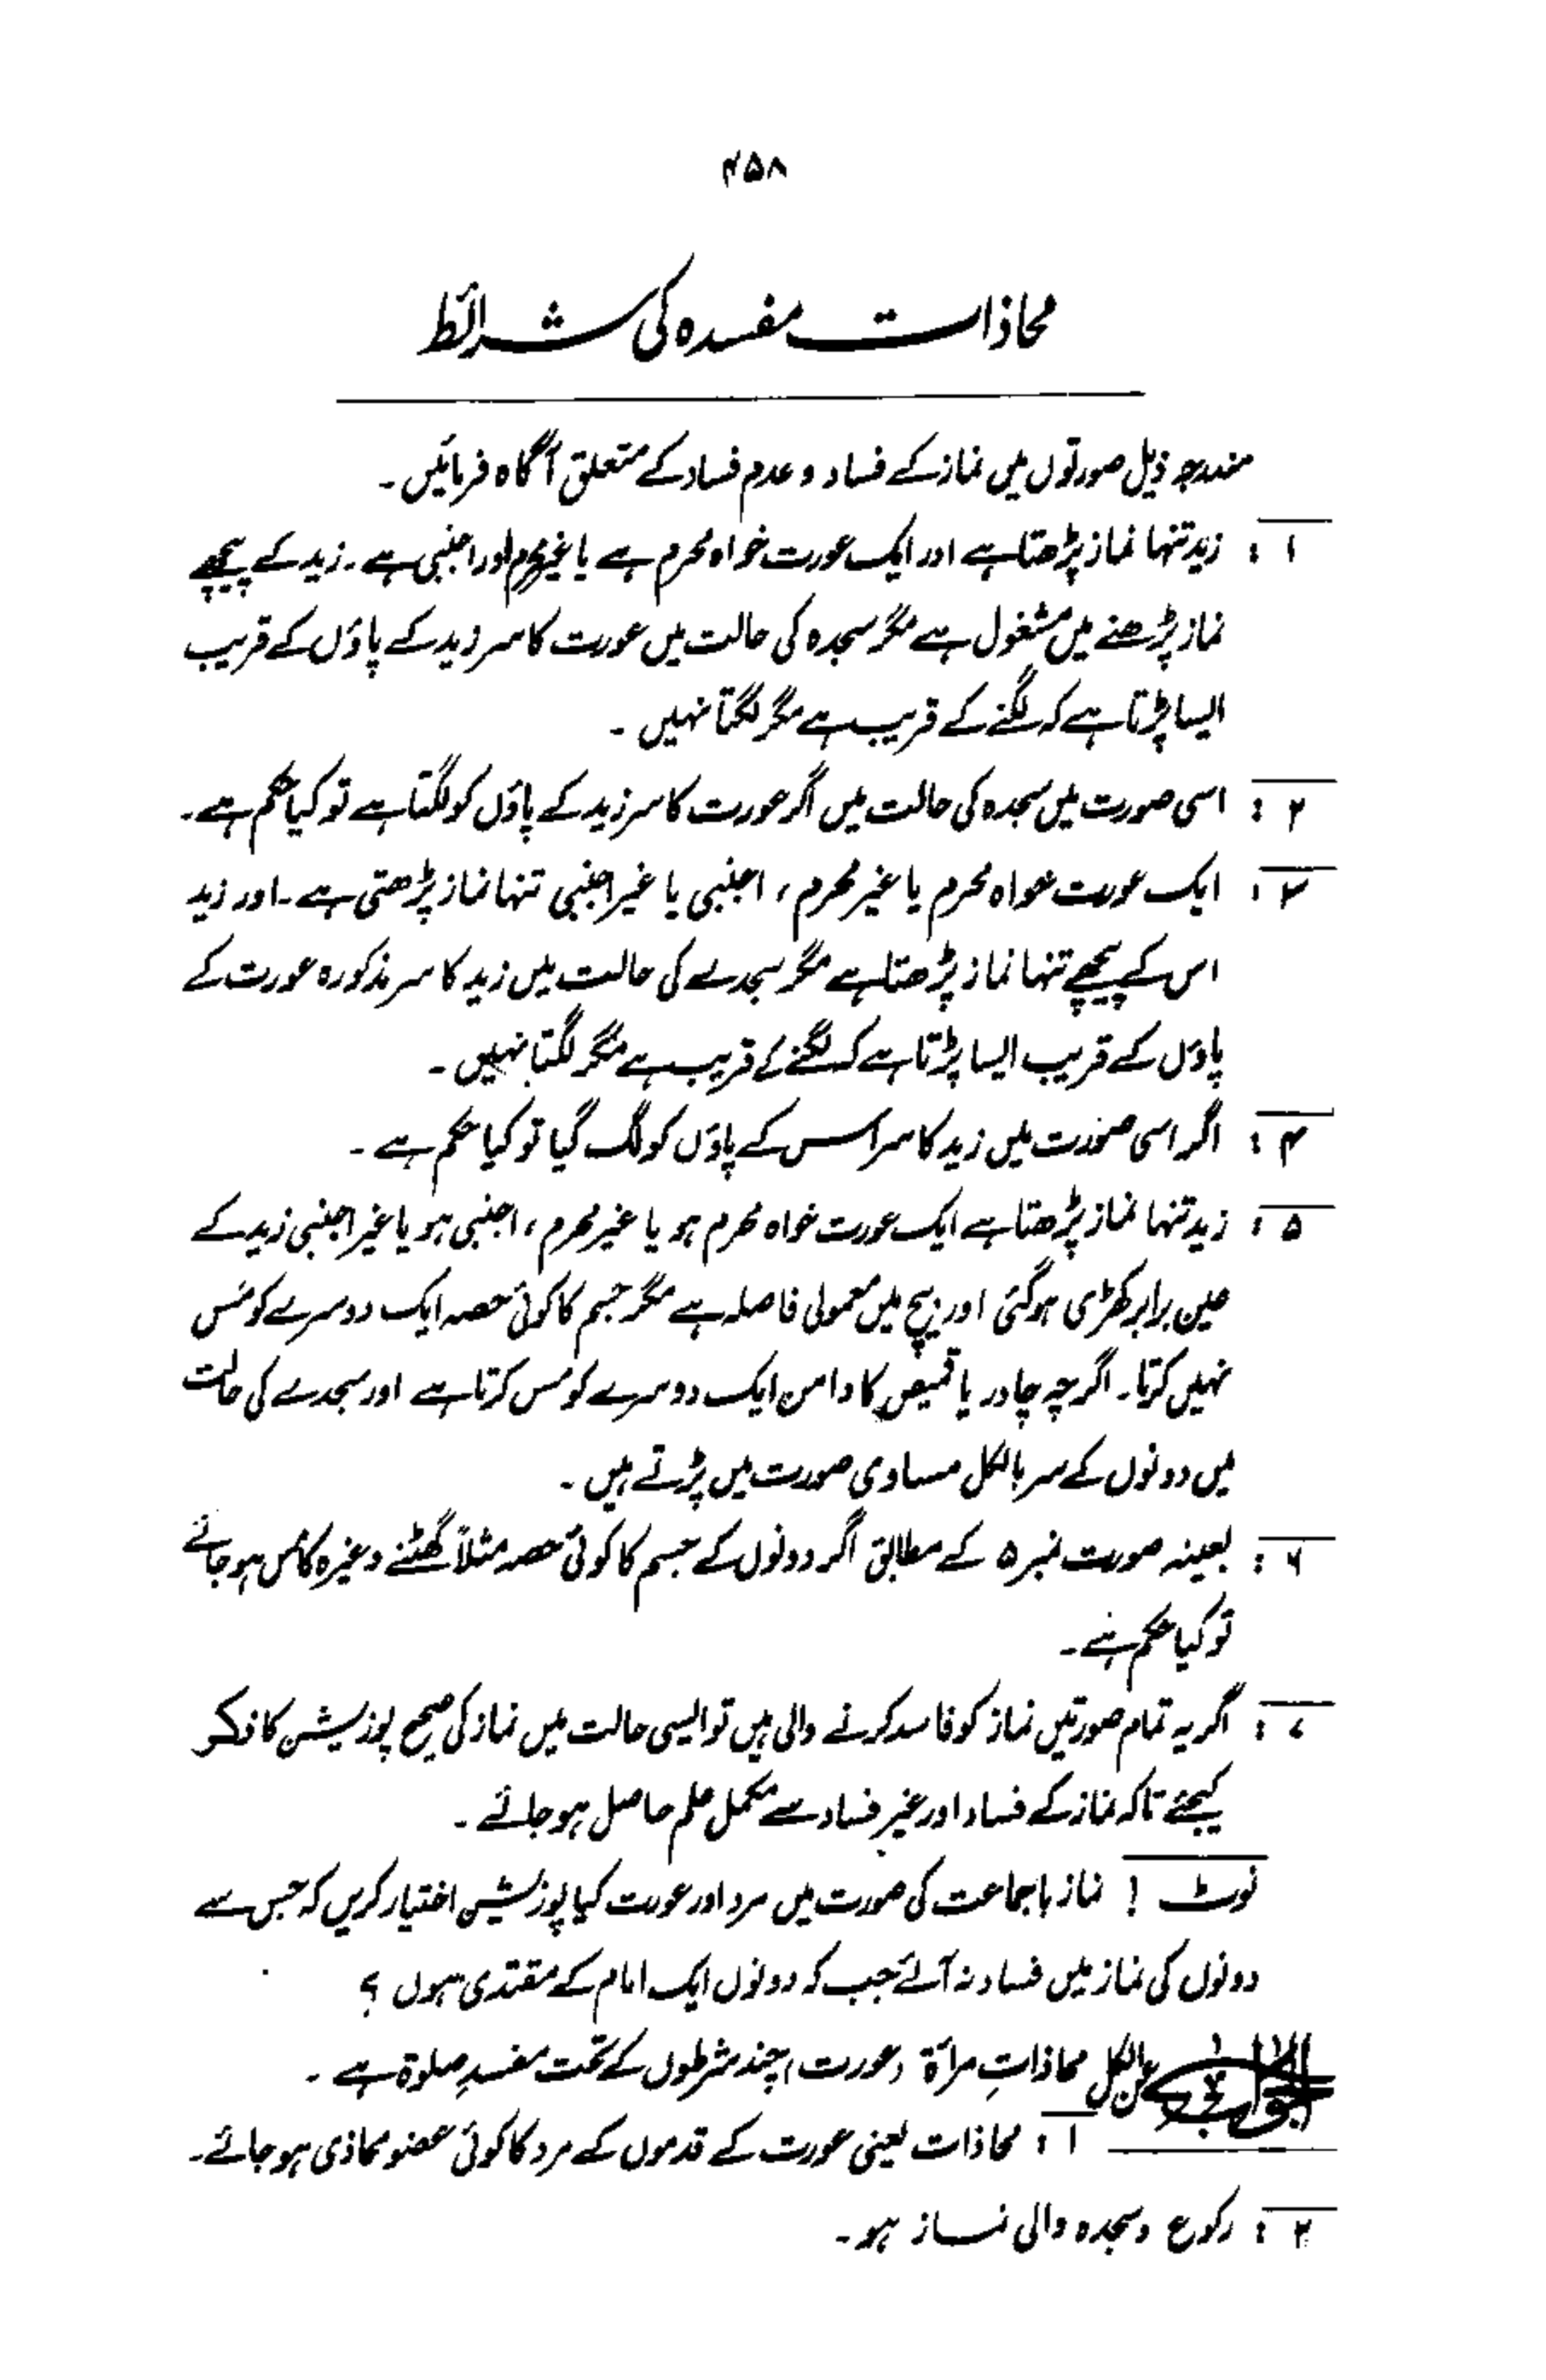 ۴۵۸
محاذات مفسدہ کی شرائط
مندرجہ ذیل صورتوں میں نماز کے فساد و عدم فساد کے متعلق آگاہ فرمائیں۔
۱ : زید تنہا نماز پڑھتا ہے اور ایک عورت خواہ محرم ہے یا غیر محرم اور اجنبی ہے۔ زید کے پیچھے
نماز پڑھنے میں مشغول ہے مگر سجدہ کی حالت میں عورت کا سر زید کے پاؤں کے قریب
ایسا پڑتا ہے کہ لگنے کے قریب ہے مگر لگتا نہیں۔
۲ : اسی صورت میں سجدہ کی حالت میں اگر عورت کا سر زید کے پاؤں کو لگتا ہے تو کیا حکم ہے۔
۳ : ایک عورت خواہ محرم یا غیر محرم ، اجنبی یا غیر اجنبی تنہا نماز پڑھتی ہے۔ اور زید
اس کے پیچھے تنہا نماز پڑھتا ہے مگر سجدے کی حالت میں زید کا سر مذکورہ عورت کے
پاؤں کے قریب ایسا پڑتا ہے کہ لگنے کے قریب ہے مگر لگتا نہیں۔
۴ : اگر اسی صورت میں زید کا سر اس کے پاؤں کو لگ گیا تو کیا حکم ہے۔
۵ : زید تنہا نماز پڑھتا ہے ایک عورت خواہ محرم ہو یا غیر محرم ، اجنبی ہو یا غیر اجنبی زید کے
عین برابر کھڑی ہو گئی اور بیچ میں معمولی فاصلہ ہے مگر جسم کا کوئی حصہ ایک دوسرے کو مس
نہیں کرتا۔ اگرچہ چادر یا قمیض کا دامن ایک دوسرے کو مس کرتا ہے اور سجدے کی حالت
میں دونوں کے سر بالکل مساوی صورت میں پڑتے ہیں۔
۶ : بعینہ صورت نمبر ۵ کے مطابق اگر دونوں کے جسم کا کوئی حصہ مثلاً گھٹنے وغیرہ کا مس ہو جائے
تو کیا حکم ہے۔
۷ : اگر یہ تمام صورتیں نماز کو فاسد کرنے والی ہیں تو ایسی حالت میں نماز کی صحیح پوزیشن کا ذکر
کیجئے تاکہ نماز کے فساد اور غیر فساد سے مکمل علم حاصل ہو جائے۔
نوٹ ! نماز باجماعت کی صورت میں مرد اور عورت کیا پوزیشن اختیار کریں کہ جس سے
دونوں کی نماز میں فساد نہ آئے جب کہ دونوں ایک امام کے مقتدی ہوں ؟
الجواب بالکل محاذاتِ مرأۃ (عورت) چند شرطوں کے تحت مفسدِ صلوۃ ہے۔
۱ : محاذات یعنی عورت کے قدموں کے مرد کا کوئی عضو محاذی ہو جائے۔
۲ : رکوع و سجدہ والی نماز ہو۔